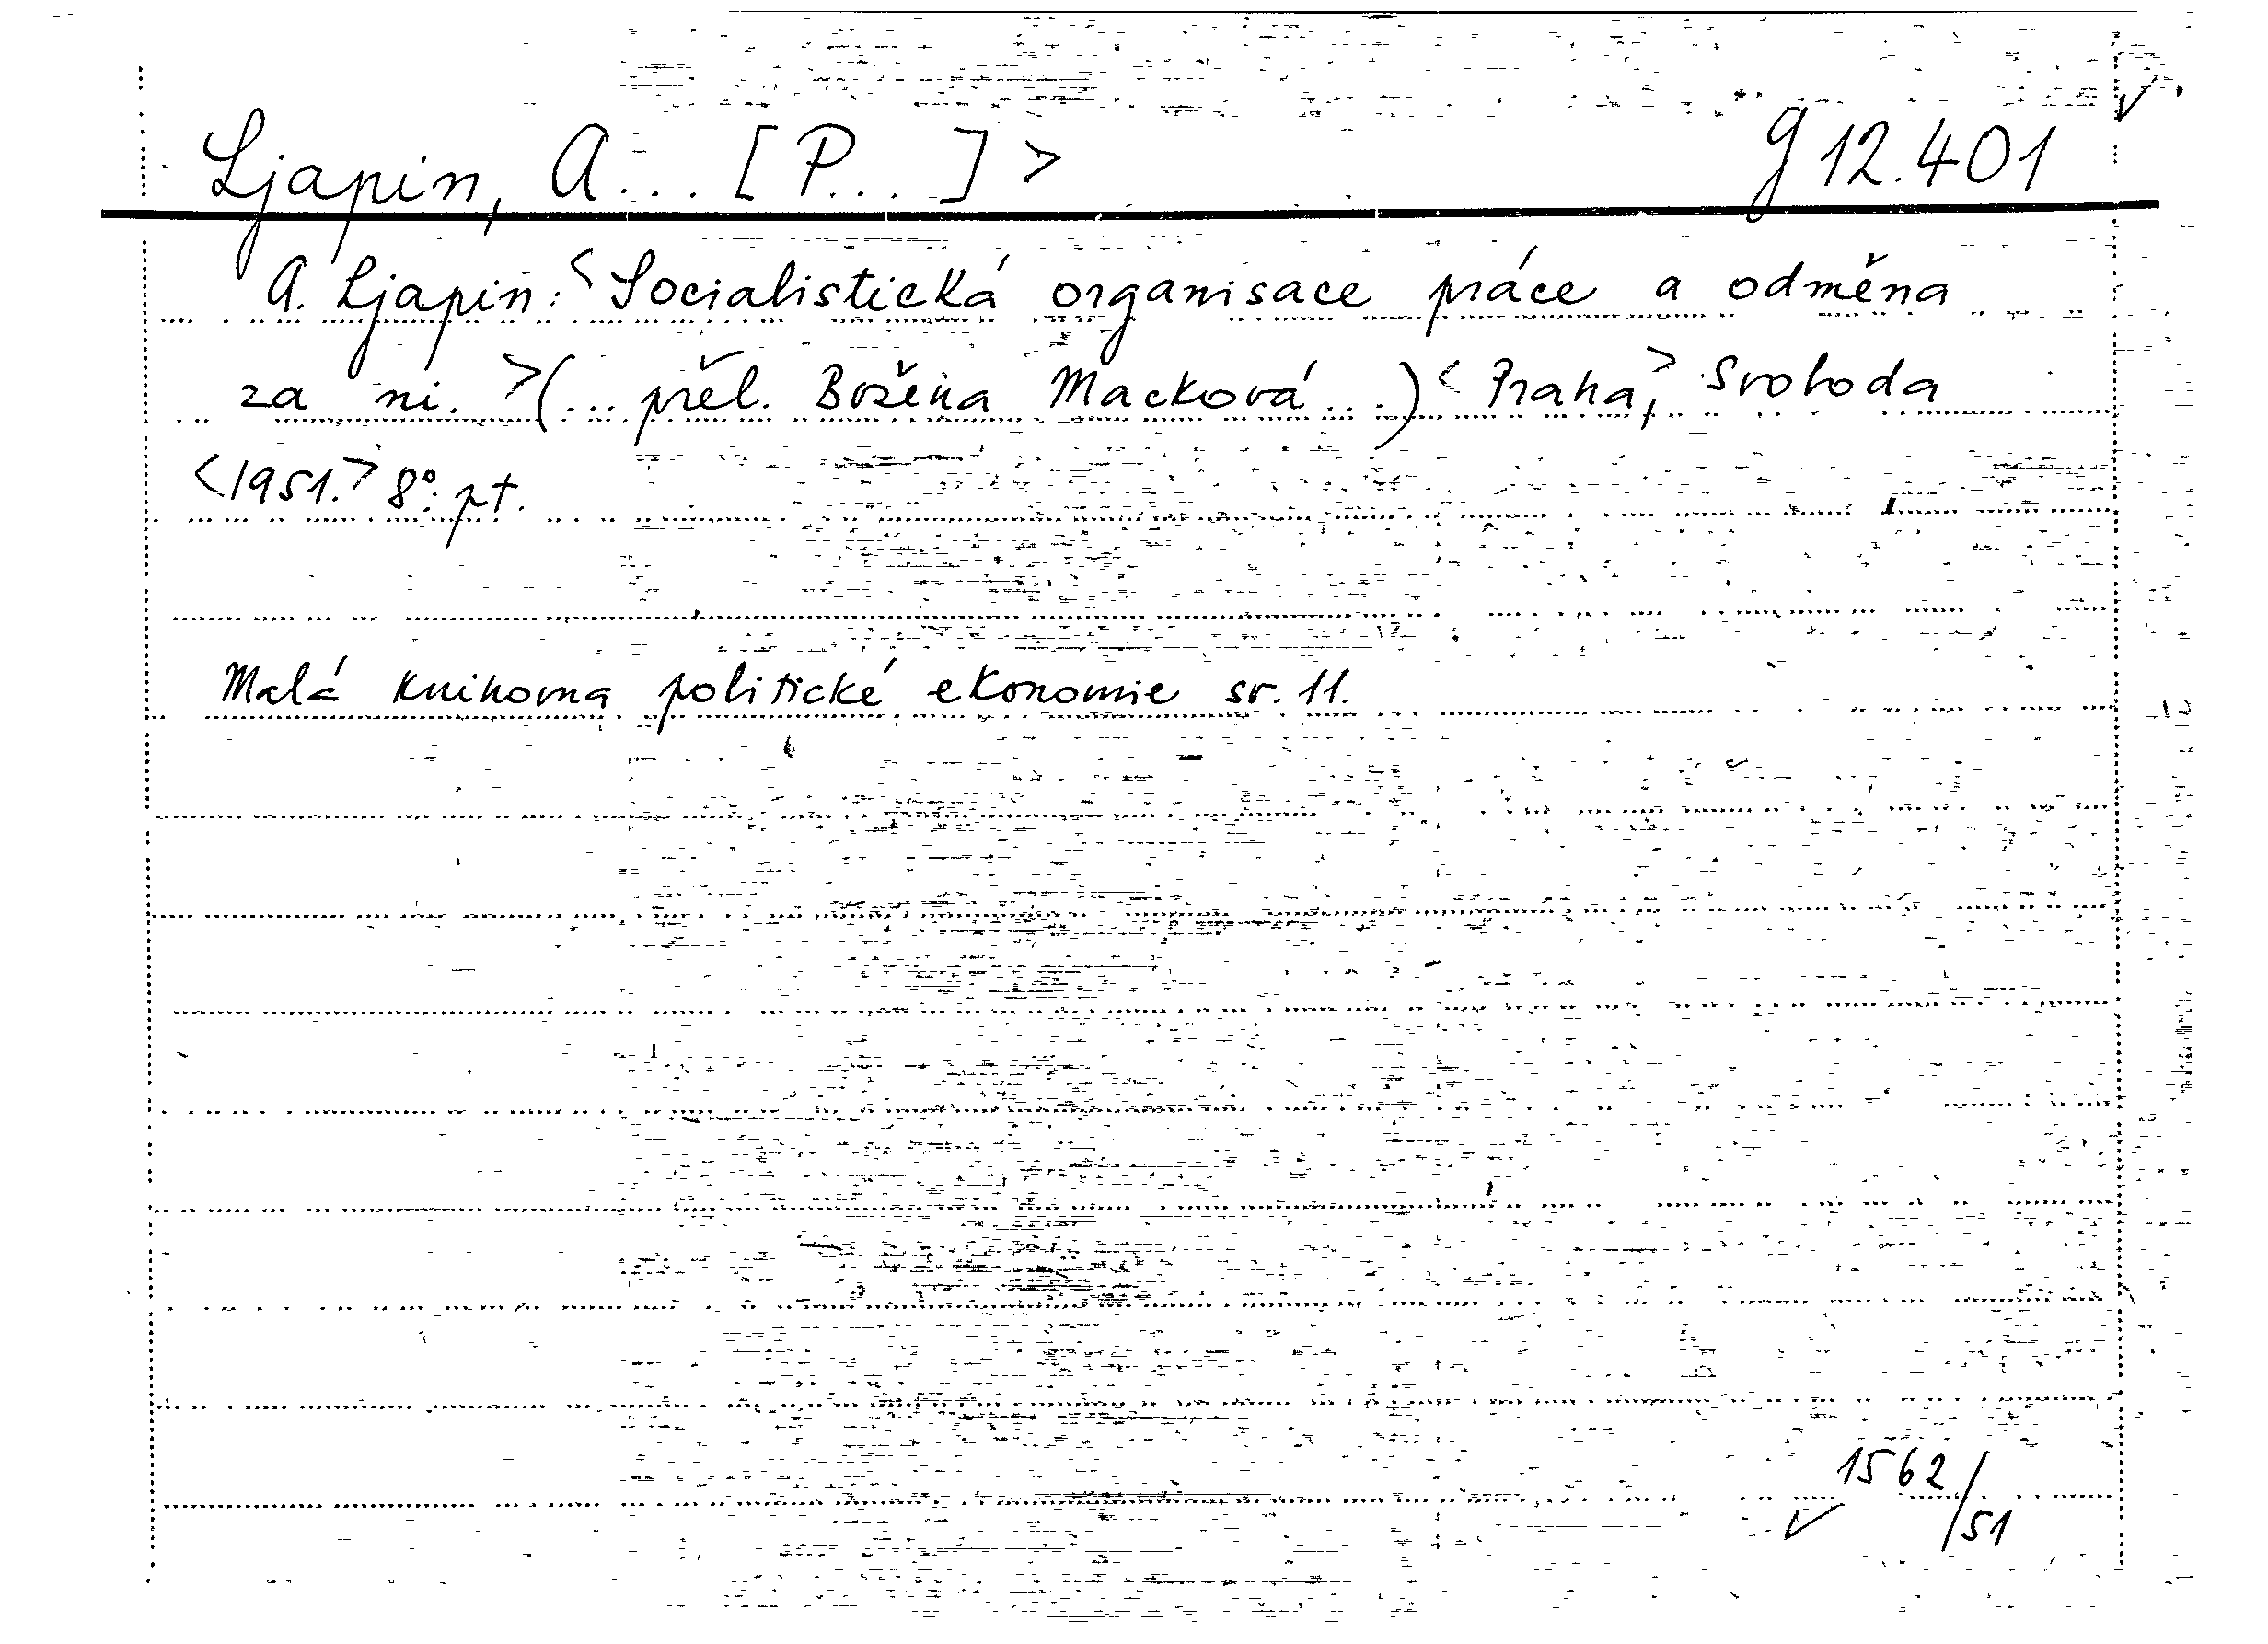 Ljapin, A... [P...] > g 12.401
A. Ljapin: <Socialistická organisace práce a odměna
za ni.> (... přel. Božena Macková...) <Praha,> Svoboda
<1951.> 8°. pt.
Malá knihovna politické ekonomie sv. 11.
1562/51